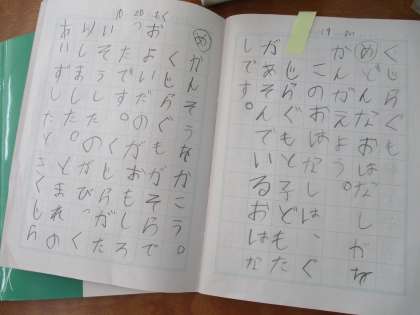 19 20
くじらぐも
めどんなおはなしかな
かんがえよう。
このおはなしは、く
じらぐもと子どもた
があそんでいるおはな
しです。
めかんそうをかこう。
くじらぐもがそらで
およいだのがおもしろ
たです。くじらがた
いそうしたのがびっく
りしました。とまれの
あいずしたときくじら